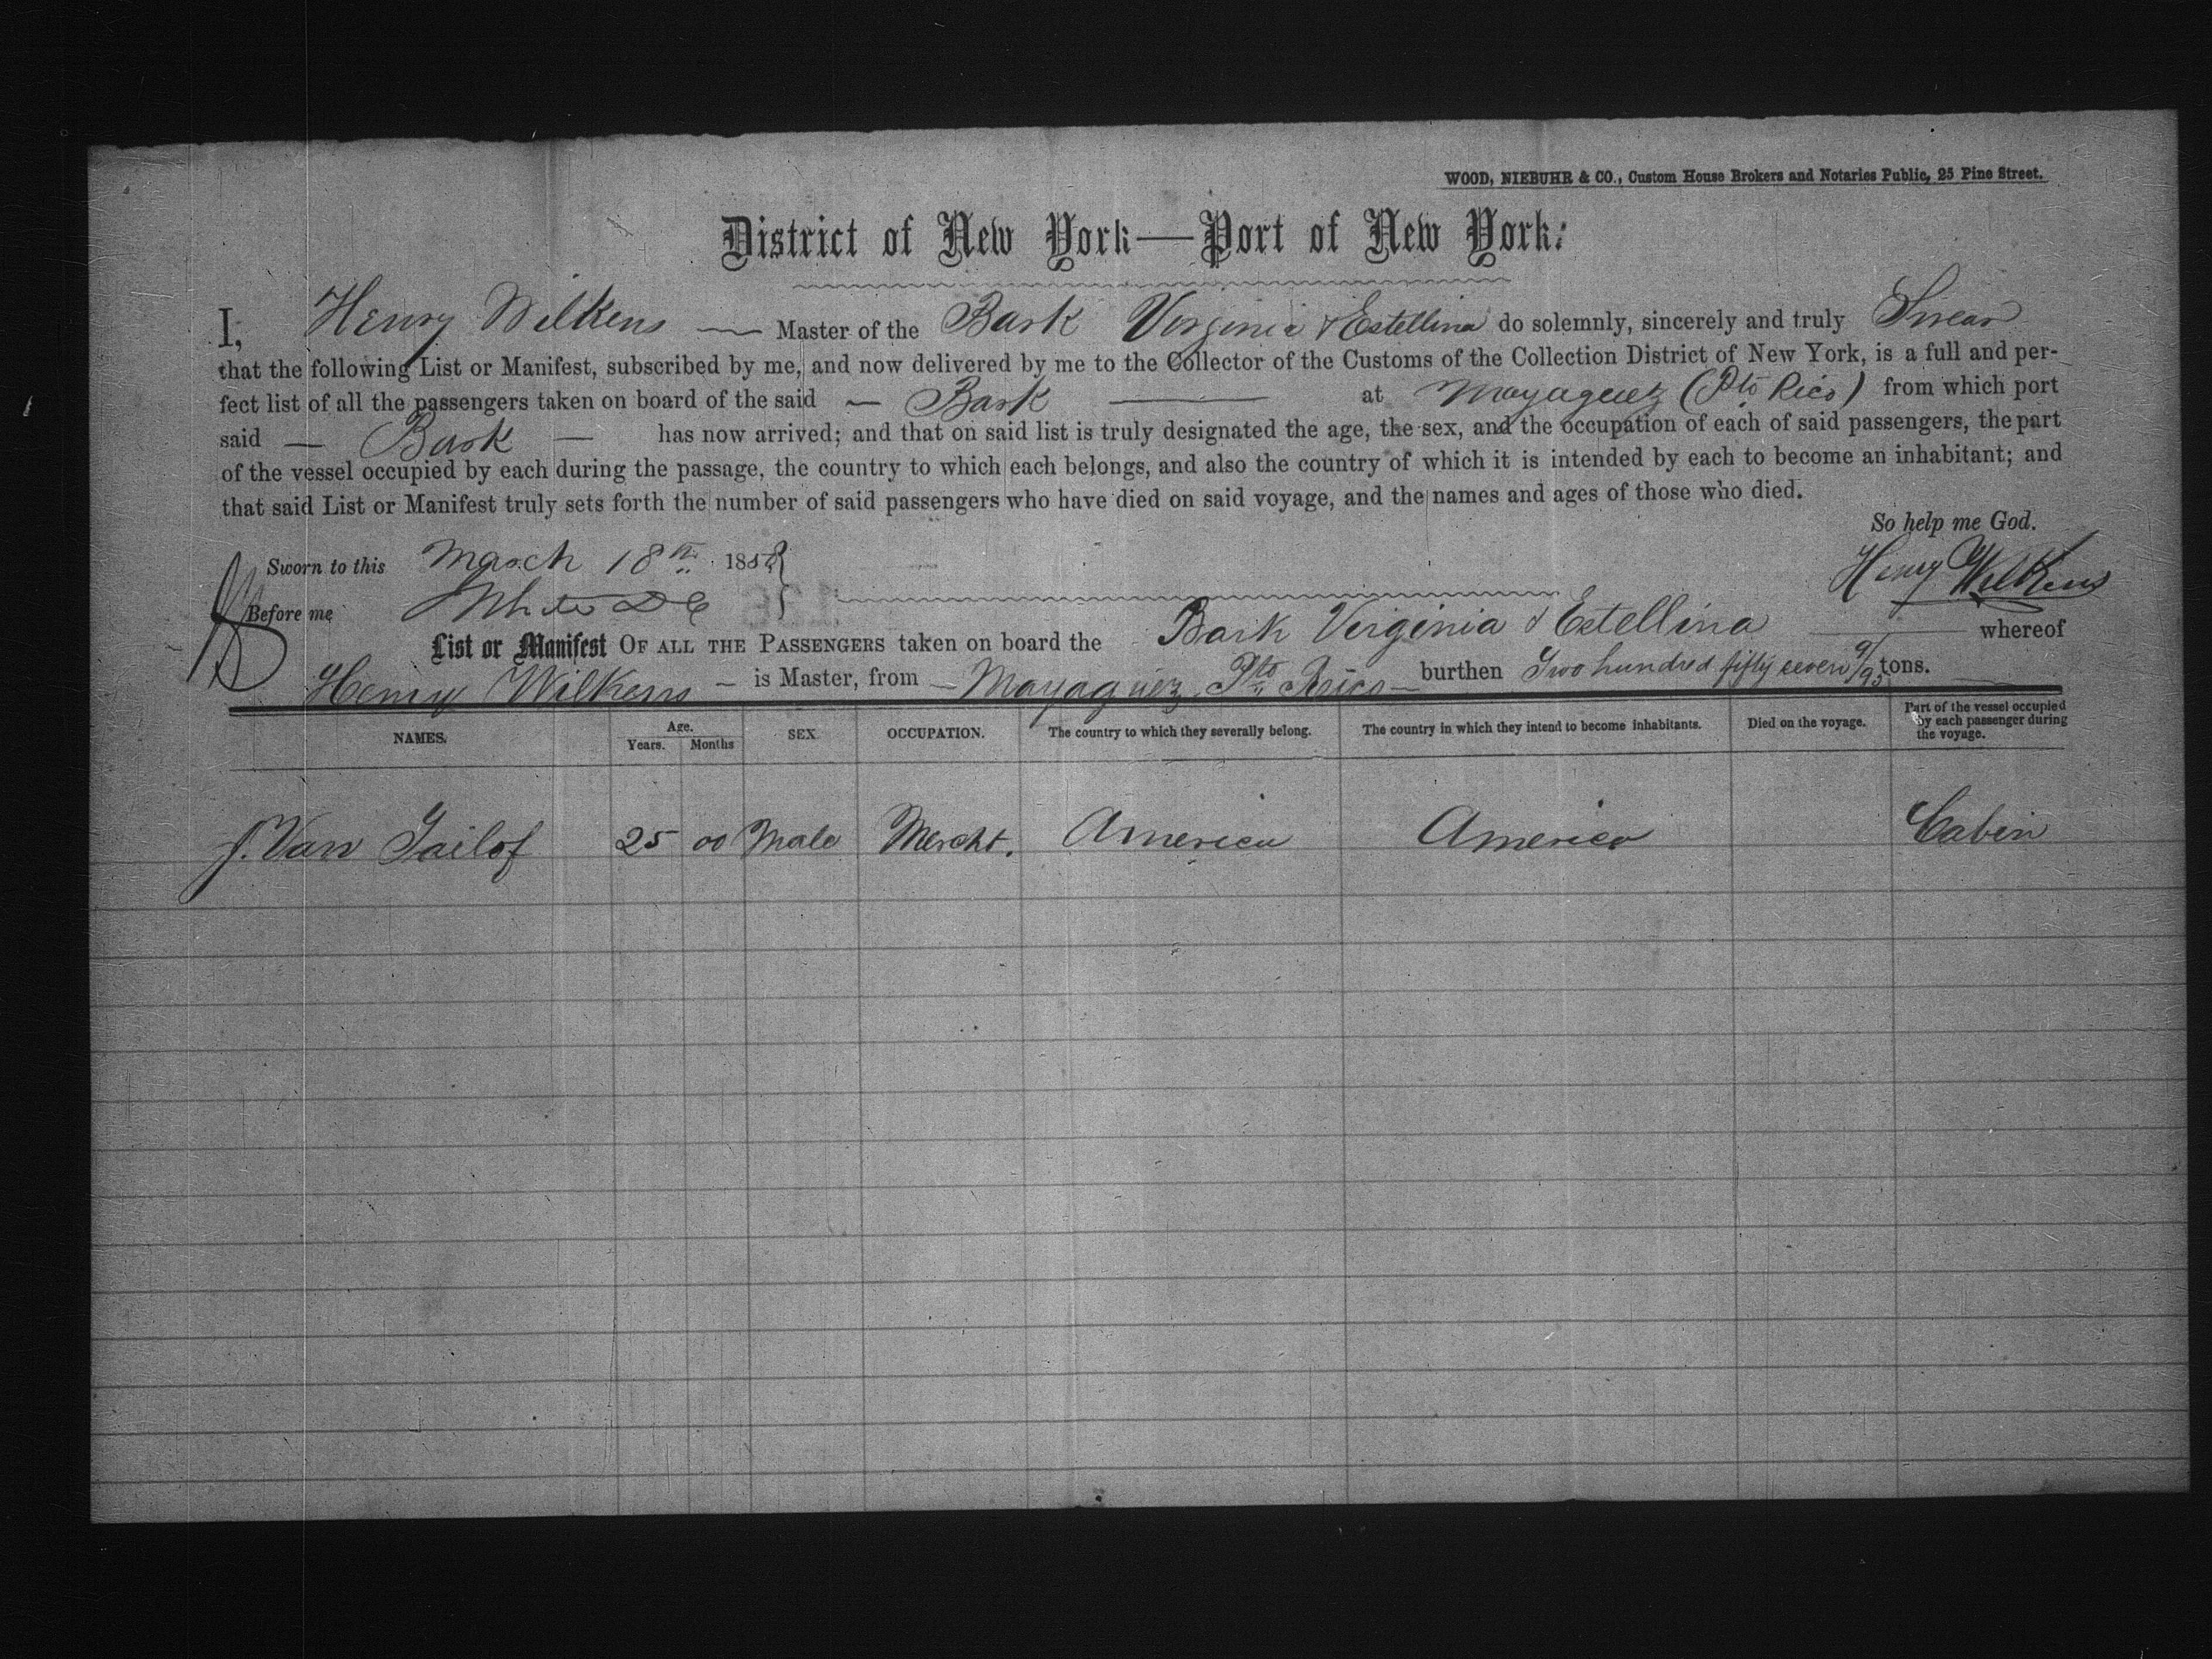 WOOD, NIEBUHR & CO., Custom House Brokers and Notaries Public, 25 Pine Street.
District of New York—Port of New York:
I, Henry Wilkens — Master of the Bark Virginia & Estellina do solemnly, sincerely and truly Swear
that the following List or Manifest, subscribed by me, and now delivered by me to the Collector of the Customs of the Collection District of New York, is a full and per-
fect list of all the passengers taken on board of the said — Bark — at Mayaguez (Pto Rico) from which port
said — Bark — has now arrived; and that on said list is truly designated the age, the sex, and the occupation of each of said passengers, the part
of the vessel occupied by each during the passage, the country to which each belongs, and also the country of which it is intended by each to become an inhabitant; and
that said List or Manifest truly sets forth the number of said passengers who have died on said voyage, and the names and ages of those who died.
So help me God.
Sworn to this March 18th 185
Henry Wilkens
Before me White
List or Manifest OF ALL THE PASSENGERS taken on board the Bark Virginia & Estellina — whereof
Henry Wilkens — is Master, from — Mayaguez Pto Rico — burthen Two hundred fifty seven 9/95 tons.
NAMES. Age. Years. Months SEX OCCUPATION. The country to which they severally belong. The country in which they intend to become inhabitants. Died on the voyage. Part of the vessel occupied by each passenger during the voyage.
J. Van Tailof 25 00 Male Mercht. America America Cabin